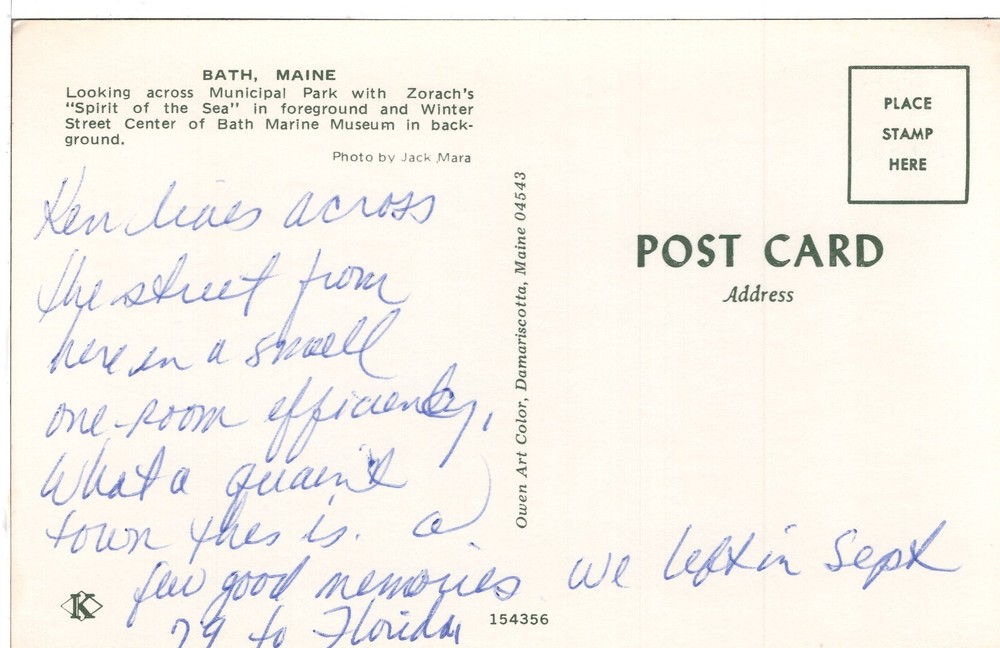 BATH, MAINE
Looking across Municipal Park with Zorach's
"Spirit of the Sea" in foreground and Winter
Street Center of Bath Marine Museum in back-
ground.
Photo by Jack Mara
Ken lives across
the street from
here in a small
one-room efficiency,
What a quaint
town this is. a
few good memories we left in Sept
79 to Florida
K
154356
Owen Art Color, Damariscotta, Maine 04543
PLACE
STAMP
HERE
POST CARD
Address